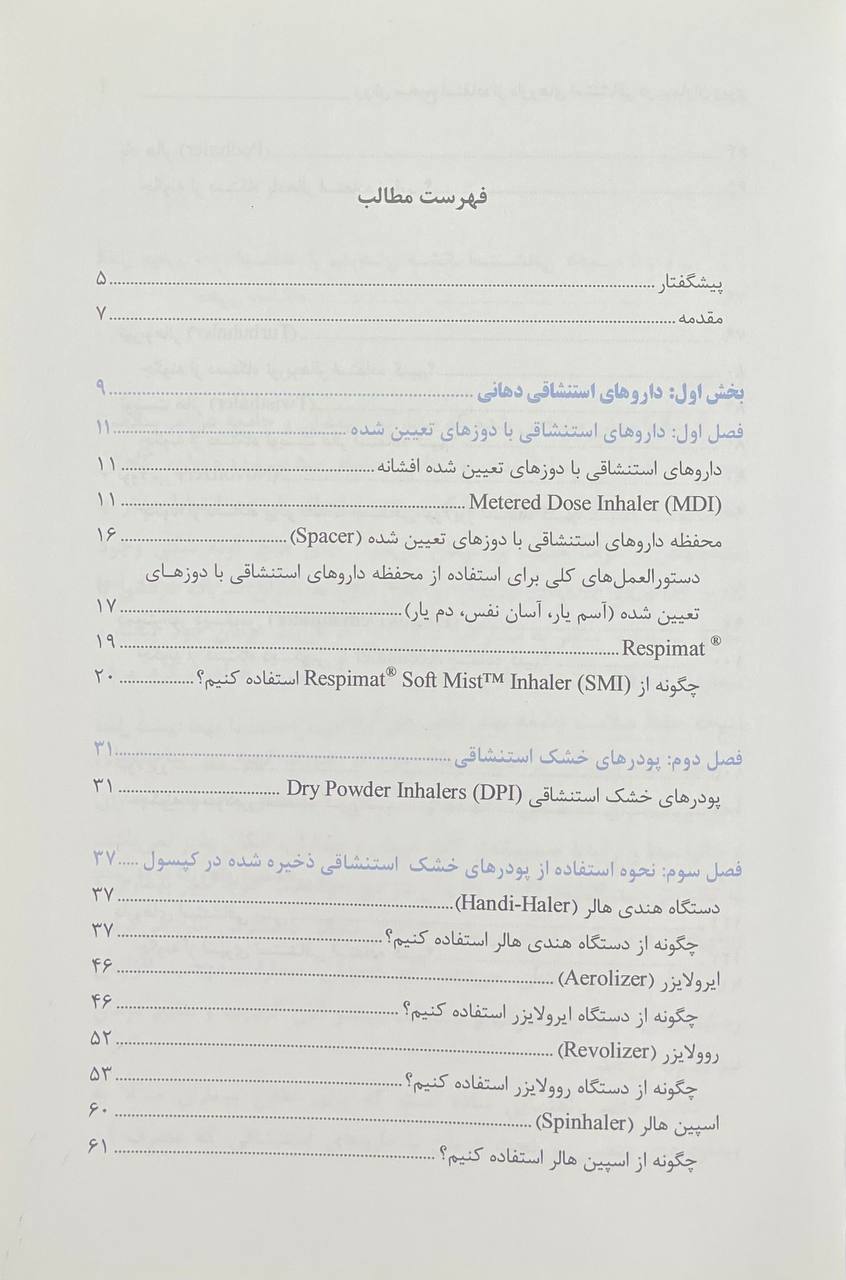 فهرست مطالب
پیشگفتار ........ ۵
مقدمه ........ ۷
بخش اول: داروهای استنشاقی دهانی ........ ۹
فصل اول: داروهای استنشاقی با دوزهای تعیین شده ........ ۱۱
داروهای استنشاقی با دوزهای تعیین شده افشانه ........ ۱۱
Metered Dose Inhaler (MDI) ........ ۱۱
محفظه داروهای استنشاقی با دوزهای تعیین شده (Spacer) ........ ۱۶
دستورالعمل‌های کلی برای استفاده از محفظه داروهای استنشاقی با دوزهـای
تعیین شده (آسم یار، آسان نفس، دم یار) ........ ۱۷
Respimat ® ........ ۱۹
چگونه از Respimat® Soft Mist™ Inhaler (SMI) استفاده کنیم؟ ........ ۲۰
فصل دوم: پودرهای خشک استنشاقی ........ ۳۱
پودرهای خشک استنشاقی Dry Powder Inhalers (DPI) ........ ۳۱
فصل سوم: نحوه استفاده از پودرهای خشک استنشاقی ذخیره شده در کپسول ..... ۳۷
دستگاه هندی هالر (Handi-Haler) ........ ۳۷
چگونه از دستگاه هندی هالر استفاده کنیم؟ ........ ۳۷
ایرولایزر (Aerolizer) ........ ۴۶
چگونه از دستگاه ایرولایزر استفاده کنیم؟ ........ ۴۶
روولایزر (Revolizer) ........ ۵۲
چگونه از دستگاه روولایزر استفاده کنیم؟ ........ ۵۳
اسپین هالر (Spinhaler) ........ ۶۰
چگونه از اسپین هالر استفاده کنیم؟ ........ ۶۱